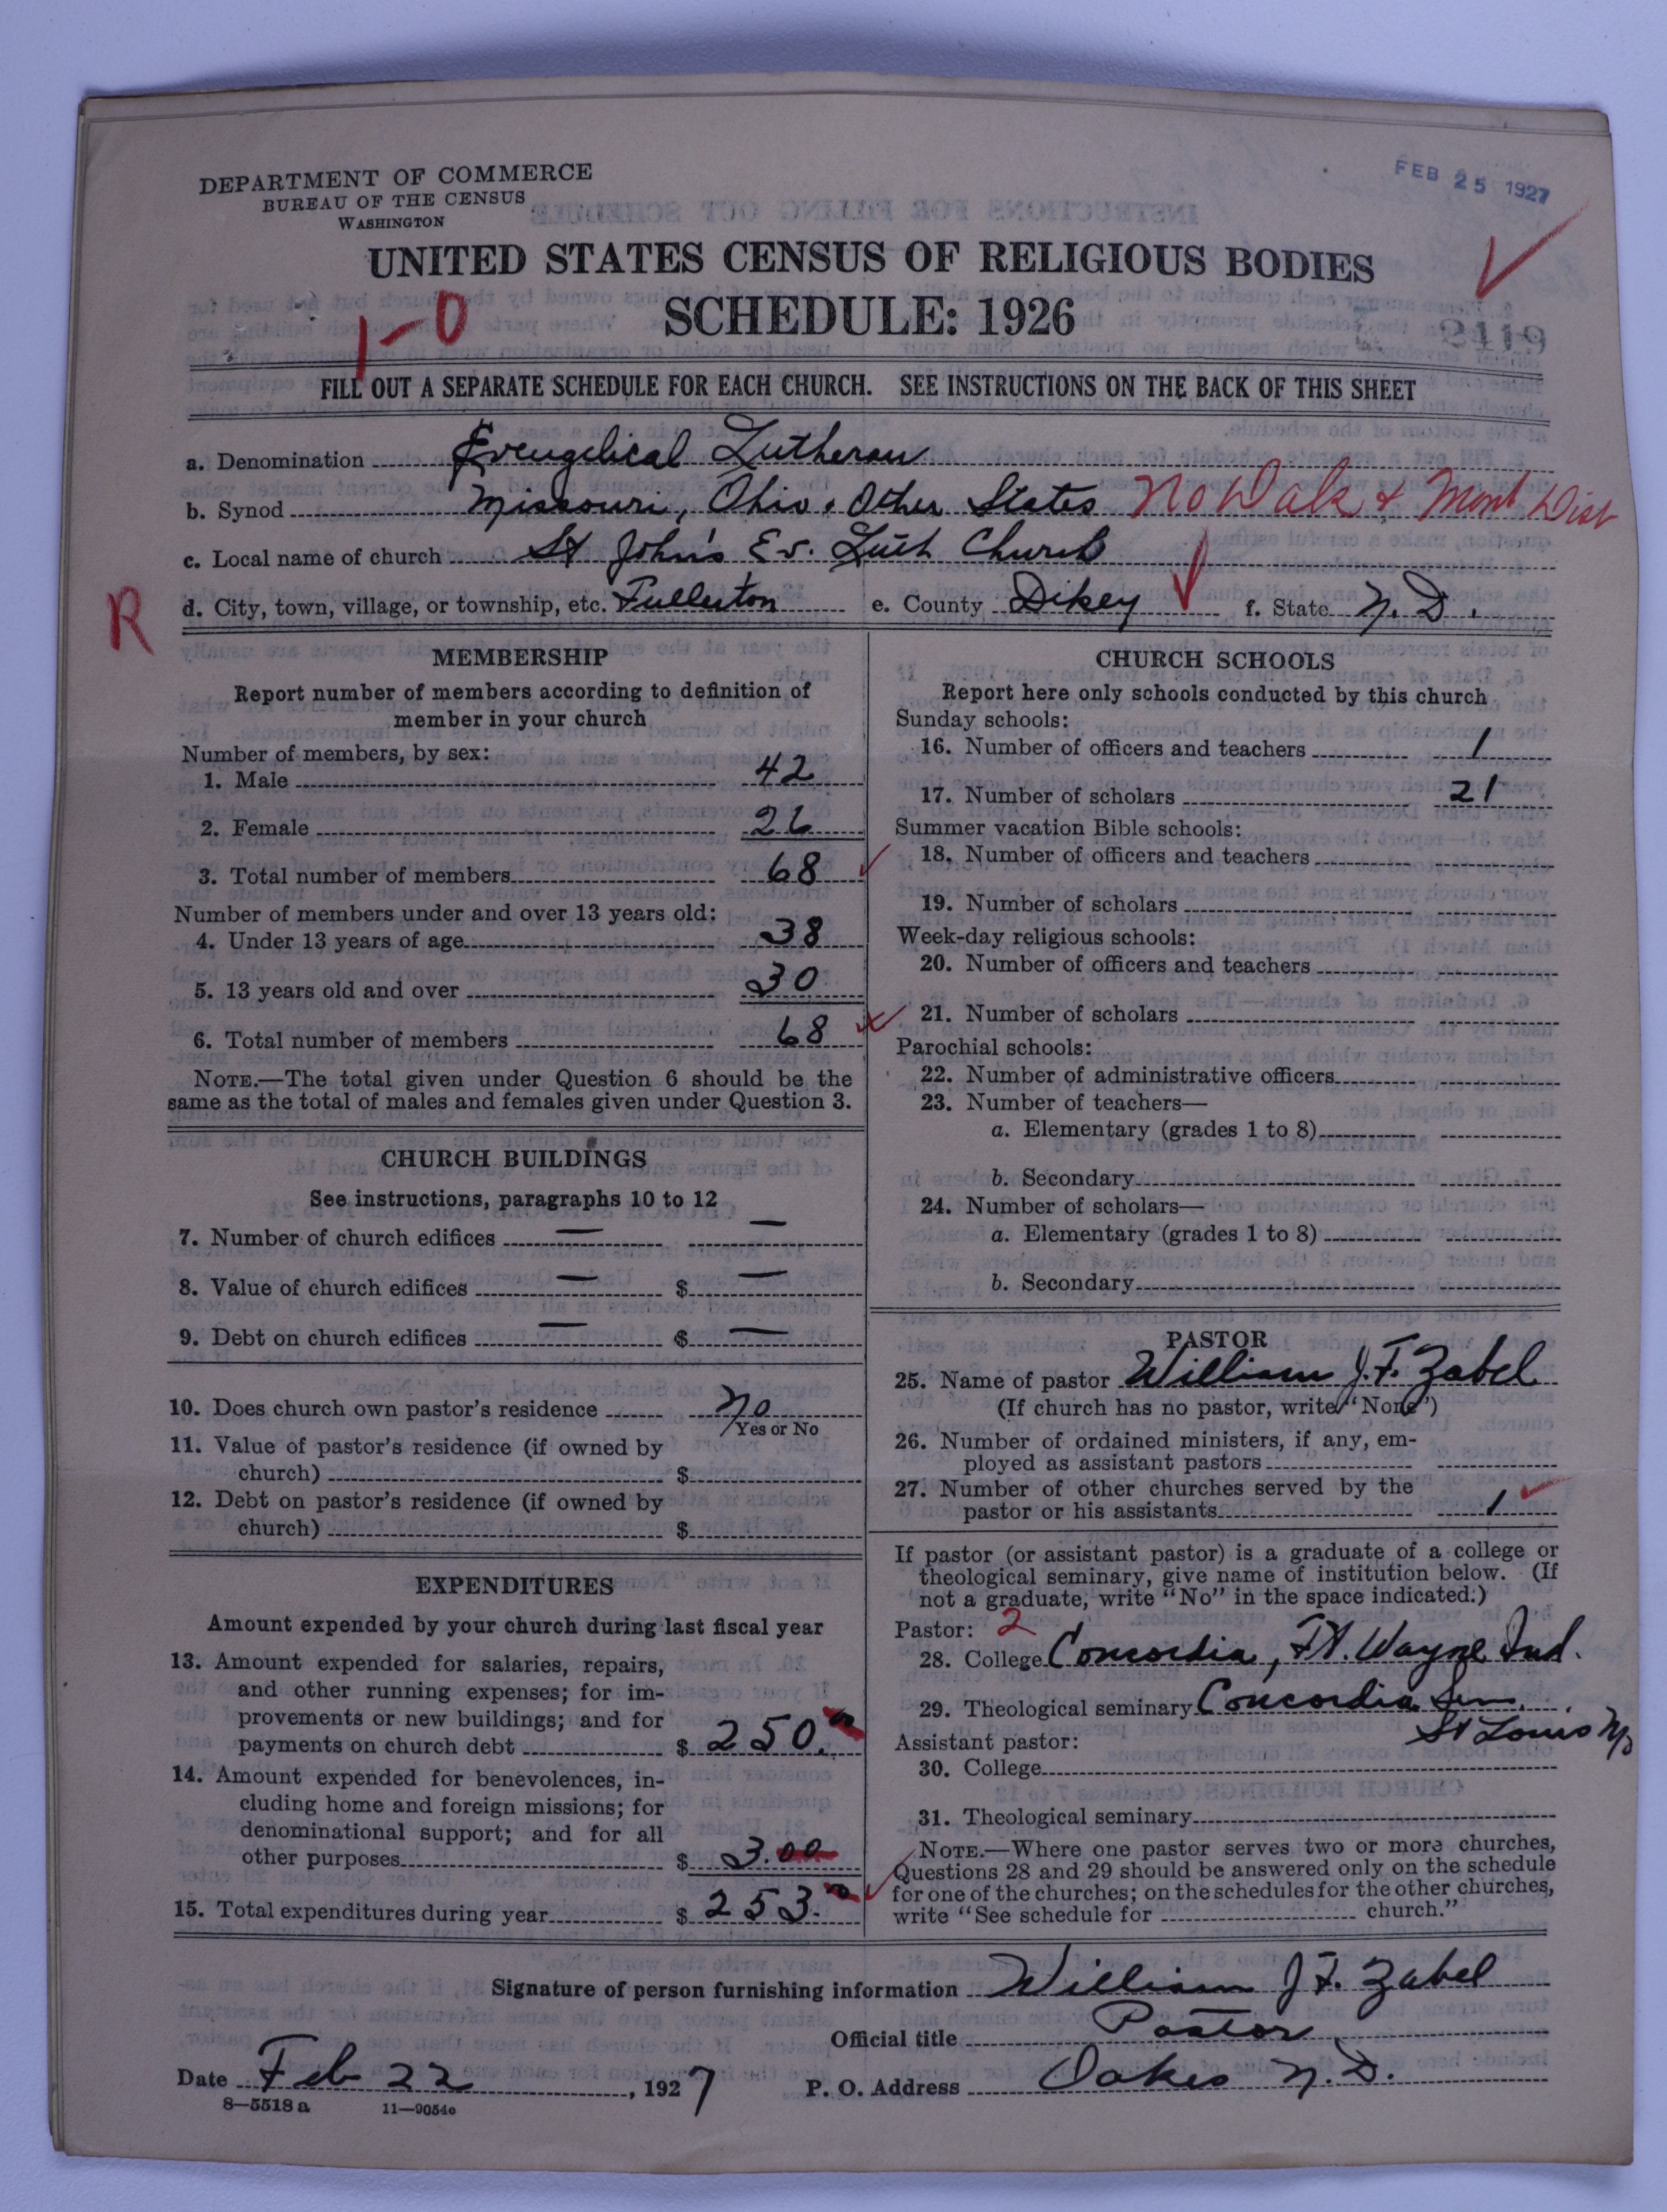 DEPARTMENT OF COMMERCE
BUREAU OF THE CENSUS
WASHINGTON
FEB 25 1927
UNITED STATES CENSUS OF RELIGIOUS BODIES
SCHEDULE: 1926
1-0
2119
FILL OUT A SEPARATE SCHEDULE FOR EACH CHURCH. SEE INSTRUCTIONS ON THE BACK OF THIS SHEET
a. Denomination Evengelical Lutheran
b. Synod Missouri, Ohio & Other States No Dak & Mont Dist
c. Local name of church St John's Ev. Luth Church
R
d. City, town, village, or township, etc. Fullerton e. County Dikey f. State N. D.
MEMBERSHIP
Report number of members according to definition of
member in your church
Number of members, by sex:
1. Male 42
2. Female 26
3. Total number of members 68
Number of members under and over 13 years old:
4. Under 13 years of age 38
5. 13 years old and over 30
6. Total number of members 68
NOTE.—The total given under Question 6 should be the
same as the total of males and females given under Question 3.
CHURCH BUILDINGS
See instructions, paragraphs 10 to 12
7. Number of church edifices — —
8. Value of church edifices — $ —
9. Debt on church edifices — $ —
10. Does church own pastor's residence No
Yes or No
11. Value of pastor's residence (if owned by
church) $
12. Debt on pastor's residence (if owned by
church) $
EXPENDITURES
Amount expended by your church during last fiscal year
13. Amount expended for salaries, repairs,
and other running expenses; for im-
provements or new buildings; and for
payments on church debt $ 250.00
14. Amount expended for benevolences, in-
cluding home and foreign missions; for
denominational support; and for all
other purposes $ 3.00
15. Total expenditures during year $ 253.00
CHURCH SCHOOLS
Report here only schools conducted by this church
Sunday schools:
16. Number of officers and teachers 1
17. Number of scholars 21
Summer vacation Bible schools:
18. Number of officers and teachers
19. Number of scholars
Week-day religious schools:
20. Number of officers and teachers
21. Number of scholars
Parochial schools:
22. Number of administrative officers
23. Number of teachers—
a. Elementary (grades 1 to 8)
b. Secondary
24. Number of scholars—
a. Elementary (grades 1 to 8)
b. Secondary
PASTOR
25. Name of pastor William J. F. Zabel
(If church has no pastor, write "None")
26. Number of ordained ministers, if any, em-
ployed as assistant pastors
27. Number of other churches served by the
pastor or his assistants 1
If pastor (or assistant pastor) is a graduate of a college or
theological seminary, give name of institution below. (If
not a graduate, write "No" in the space indicated.)
Pastor: 2
28. College Concordia, Ft. Wayne Ind.
29. Theological seminary Concordia Sem.
St Louis Mo
Assistant pastor:
30. College
31. Theological seminary
NOTE.—Where one pastor serves two or more churches,
Questions 28 and 29 should be answered only on the schedule
for one of the churches; on the schedules for the other churches,
write "See schedule for church."
Signature of person furnishing information William J. F. Zabel
Official title Pastor
Date Feb 22, 1927 P. O. Address Oakes N. D.
8—5518 a 11—9054c